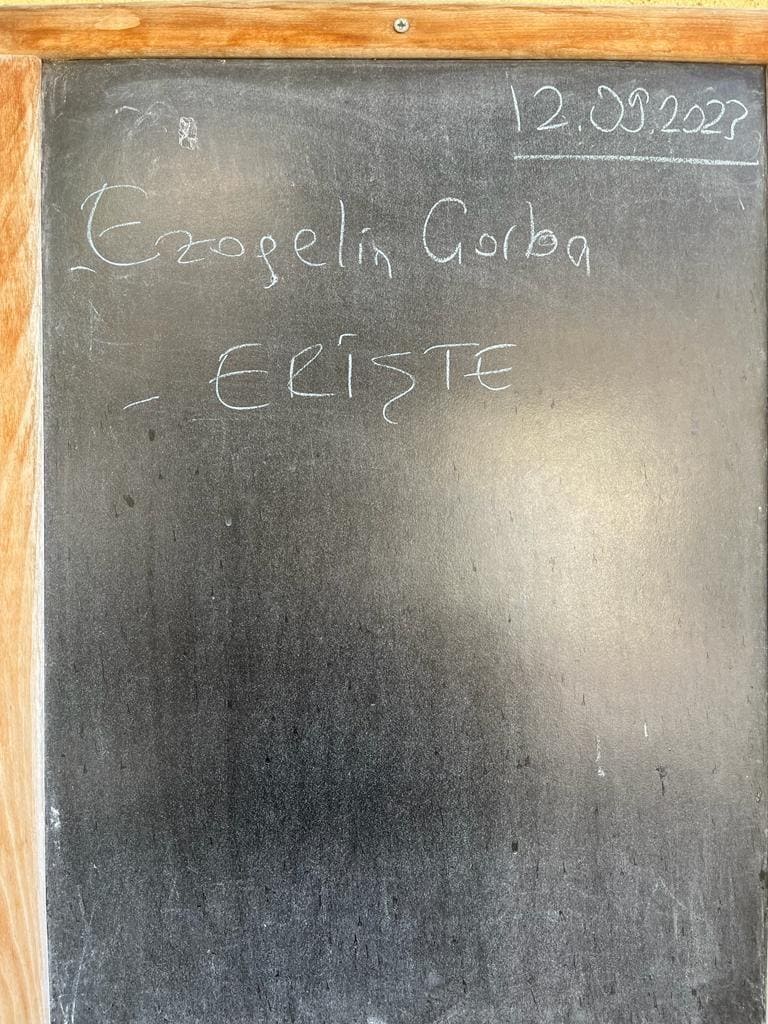 12.09.2023
- Ezogelin Çorba
- ERİŞTE